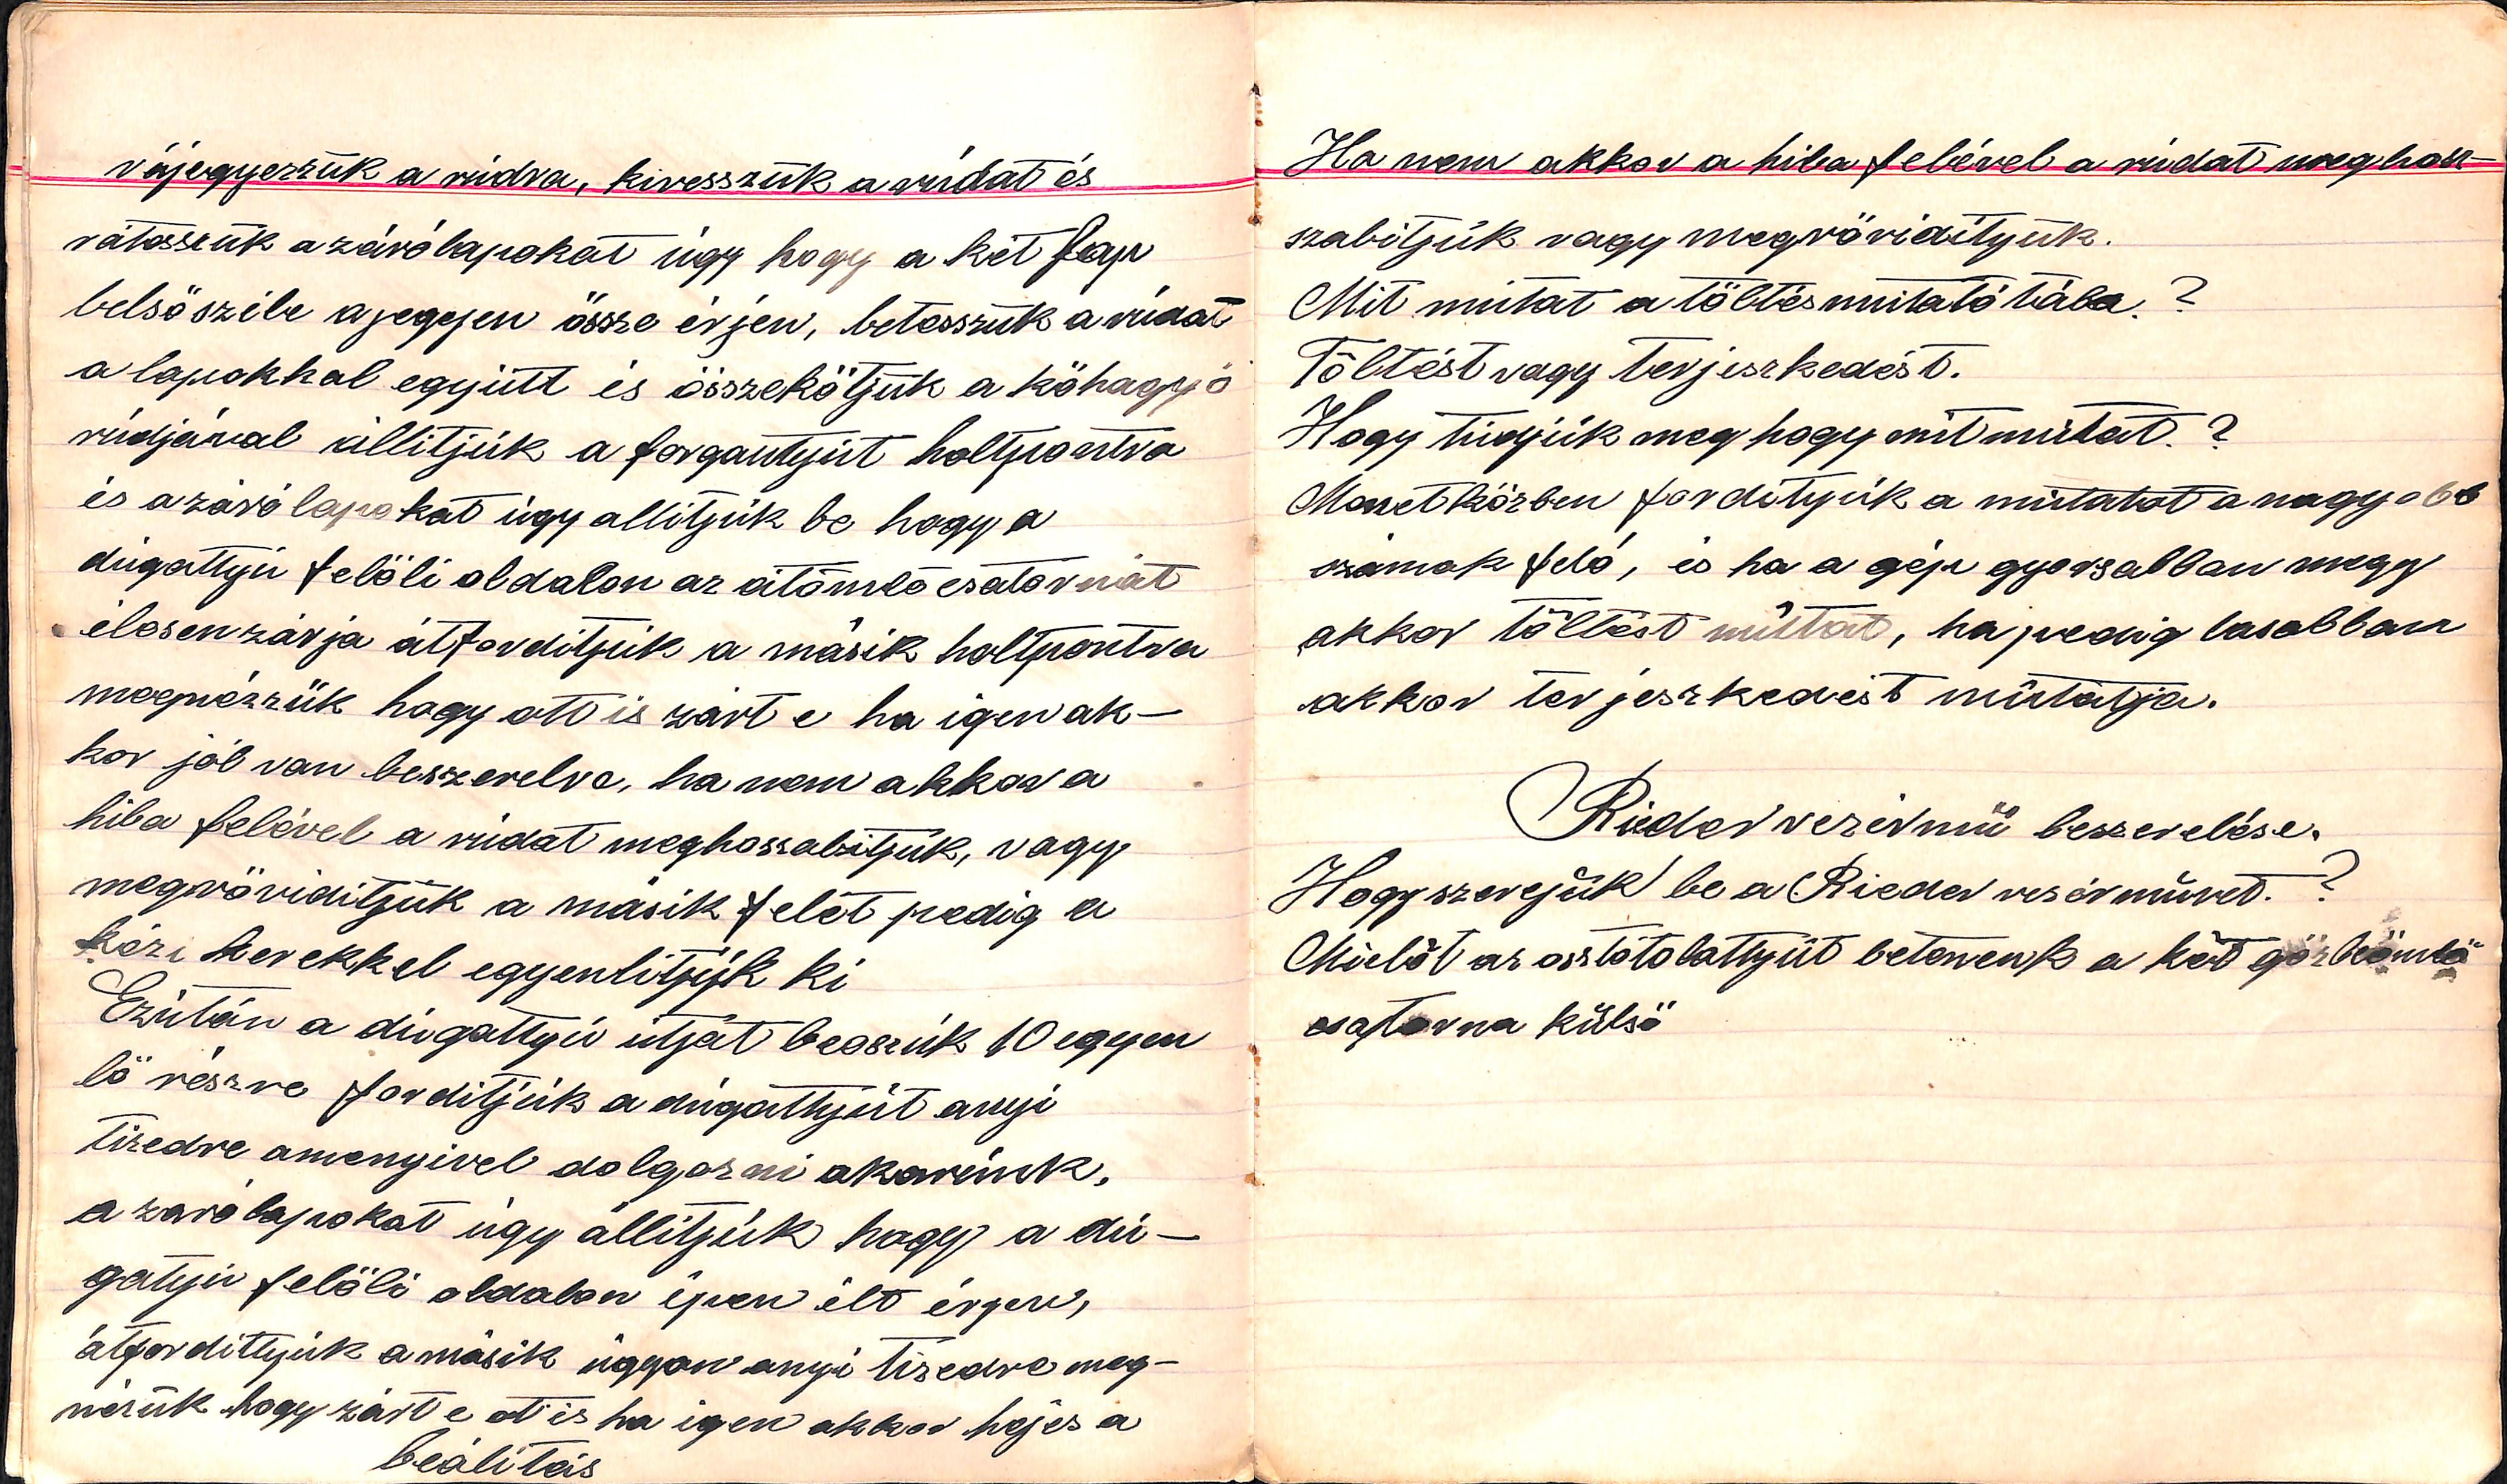 rájegyezzük a rúdra, kivesszük a rúdat és
rátesszük a zárólapokat úgy hogy a két lap
belsöszéle a jegyen össze érjen, betesszük a rúdat
a lapokkal együtt és összekötjük a köhagyó
rúdjával állitjúk a forgantyút holtpontra
és a záró lapokat úgy allitjúk be hogy a
dúgattyú felöli oldalon az átömlö csatornát
élesen zárja átforditjúk a másik holtpontra
megnézzük hogy ott is zárt e ha igen ak-
kor jól van beszerelve, ha nem akkor a
hiba felével a rúdat meghosszabitjúk, vagy
megröviditjük a másik felét pedig a
kézi kerekkel egyenlitjük ki
Ezútán a dúgattyú útját beoszúk 10 egyen
lö részre forditjúk a dúgattyút anyi
tizedre amenyivel dolgozni akarúnk.
a zarólapokat úgy állitjúk hogy a dú-
gatyú felöli oldalon épen élt érjen,
átfordittyúk a másik úgyan anyi tizedre meg-
nézük hogy zárt e ot is ha igen akkor hejes a
beálitás
Ha nem akkor a hiba felével a rúdat meghosz-
szabitjúk vagy megröviditjük.
Mit mútat a töltésmútató tábla.?
Töltést vagy terjeszkedést.
Hogy túdjúk meg hogy mit mútat.?
Menetközben forditjúk a mútatot a nagyobb
számok felé, és ha a gép gyorsabban megy
akkor töltést mútat, ha pedig lasabban
akkor terjeszkedést mútatja.
Rieder vezérmü beszerelése.
Hogy szerejük be a Rieder vezérmüvet.?
Mielöt az osztótolattyút betenenk a két gözbeömlö
csatorna külsö